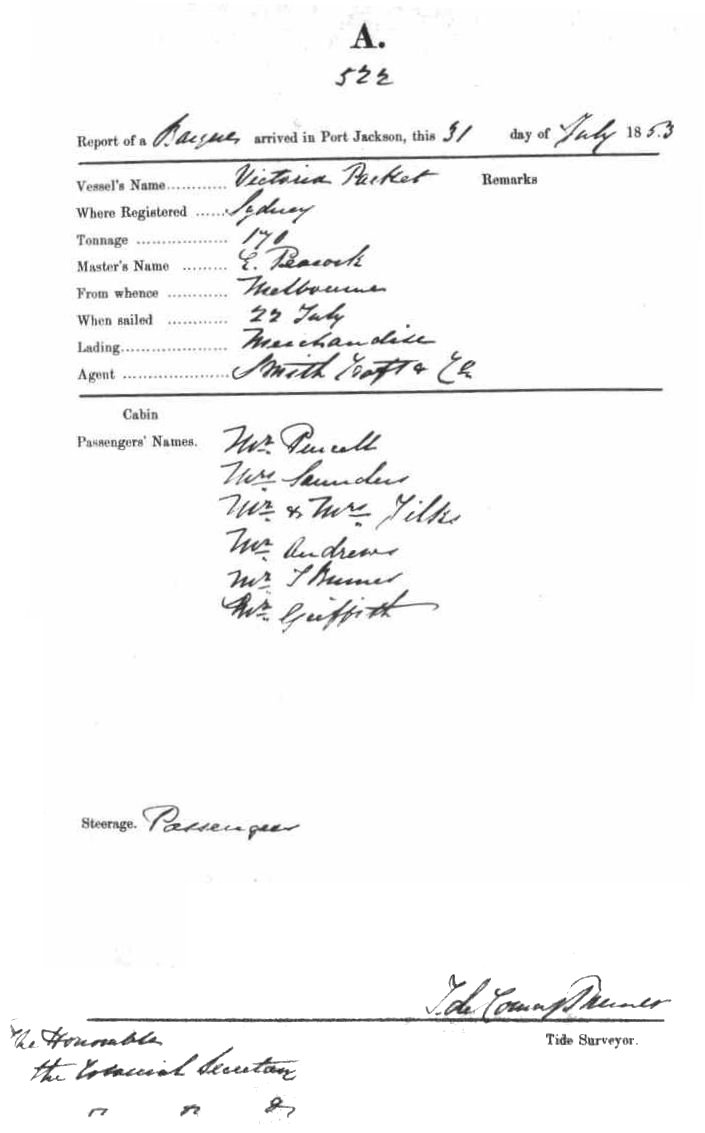 A.
522
Report of a Barque arrived in Port Jackson, this 31 day of July 1853
Vessel's Name............ Victoria Packet Remarks
Where Registered ...... Sydney
Tonnage .................. 170
Master's Name ......... E. Peacock
From whence ............ Melbourne
When sailed ............ 22 July
Lading..................... Merchandise
Agent ..................... Smith Croft & Co
Cabin
Passengers' Names. Mr. Purcell
Mrs Saunders
Mr. & Mrs Filks
Mr. Andrews
Mr.
Mr. Griffith
Steerage. Passengers
Tide Surveyor.
The Honorable
the Colonial Secretary